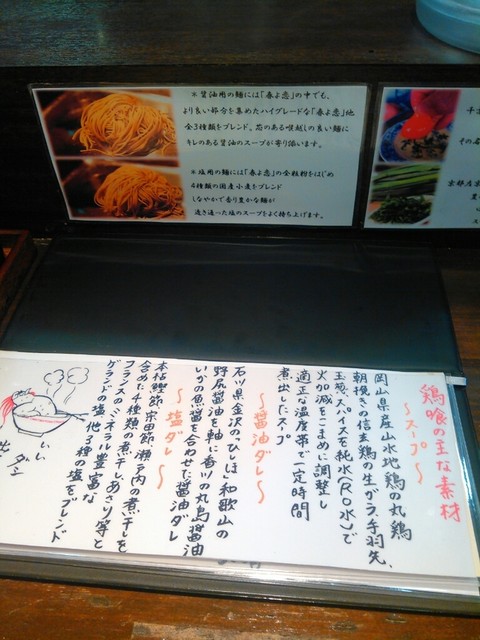 ＊醤油用の麺には「春よ恋」の中でも、
より良い部分を集めたハイグレードな「春よ恋」他
全3種類をブレンド。芯のある喉越しの良い麺に
キレのある醤油のスープが寄り添います。
＊塩用の麺には「春よ恋」の全粒粉をはじめ
4種類の国産小麦をブレンド
しなやかで香り豊かな麺が
透き通った塩のスープをよく持ち上げます。
その名
京都産京
鶏喰の主な素材
〜スープ〜
岡山県産山水地鶏の丸鶏
朝挽きの信玄鶏の生がラ、手羽先、
玉葱、スパイスを純水（RO水）で
火加減をこまめに調整し
適正な温度帯で一定時間
煮出したスープ
〜醤油ダレ〜
石川県金沢のひしほ、和歌山の
野尻醤油を軸に香川の丸島醤油
いかの魚醤を合わせた醤油ダレ
〜塩ダレ〜
本枯鰹節、宗田節、瀬戸内の煮干しを
含めた4種類の煮干し、あさり等と
フランスのミネラル豊富な
ゲランドの塩他3種の塩をブレンド
いい
ダシ
出